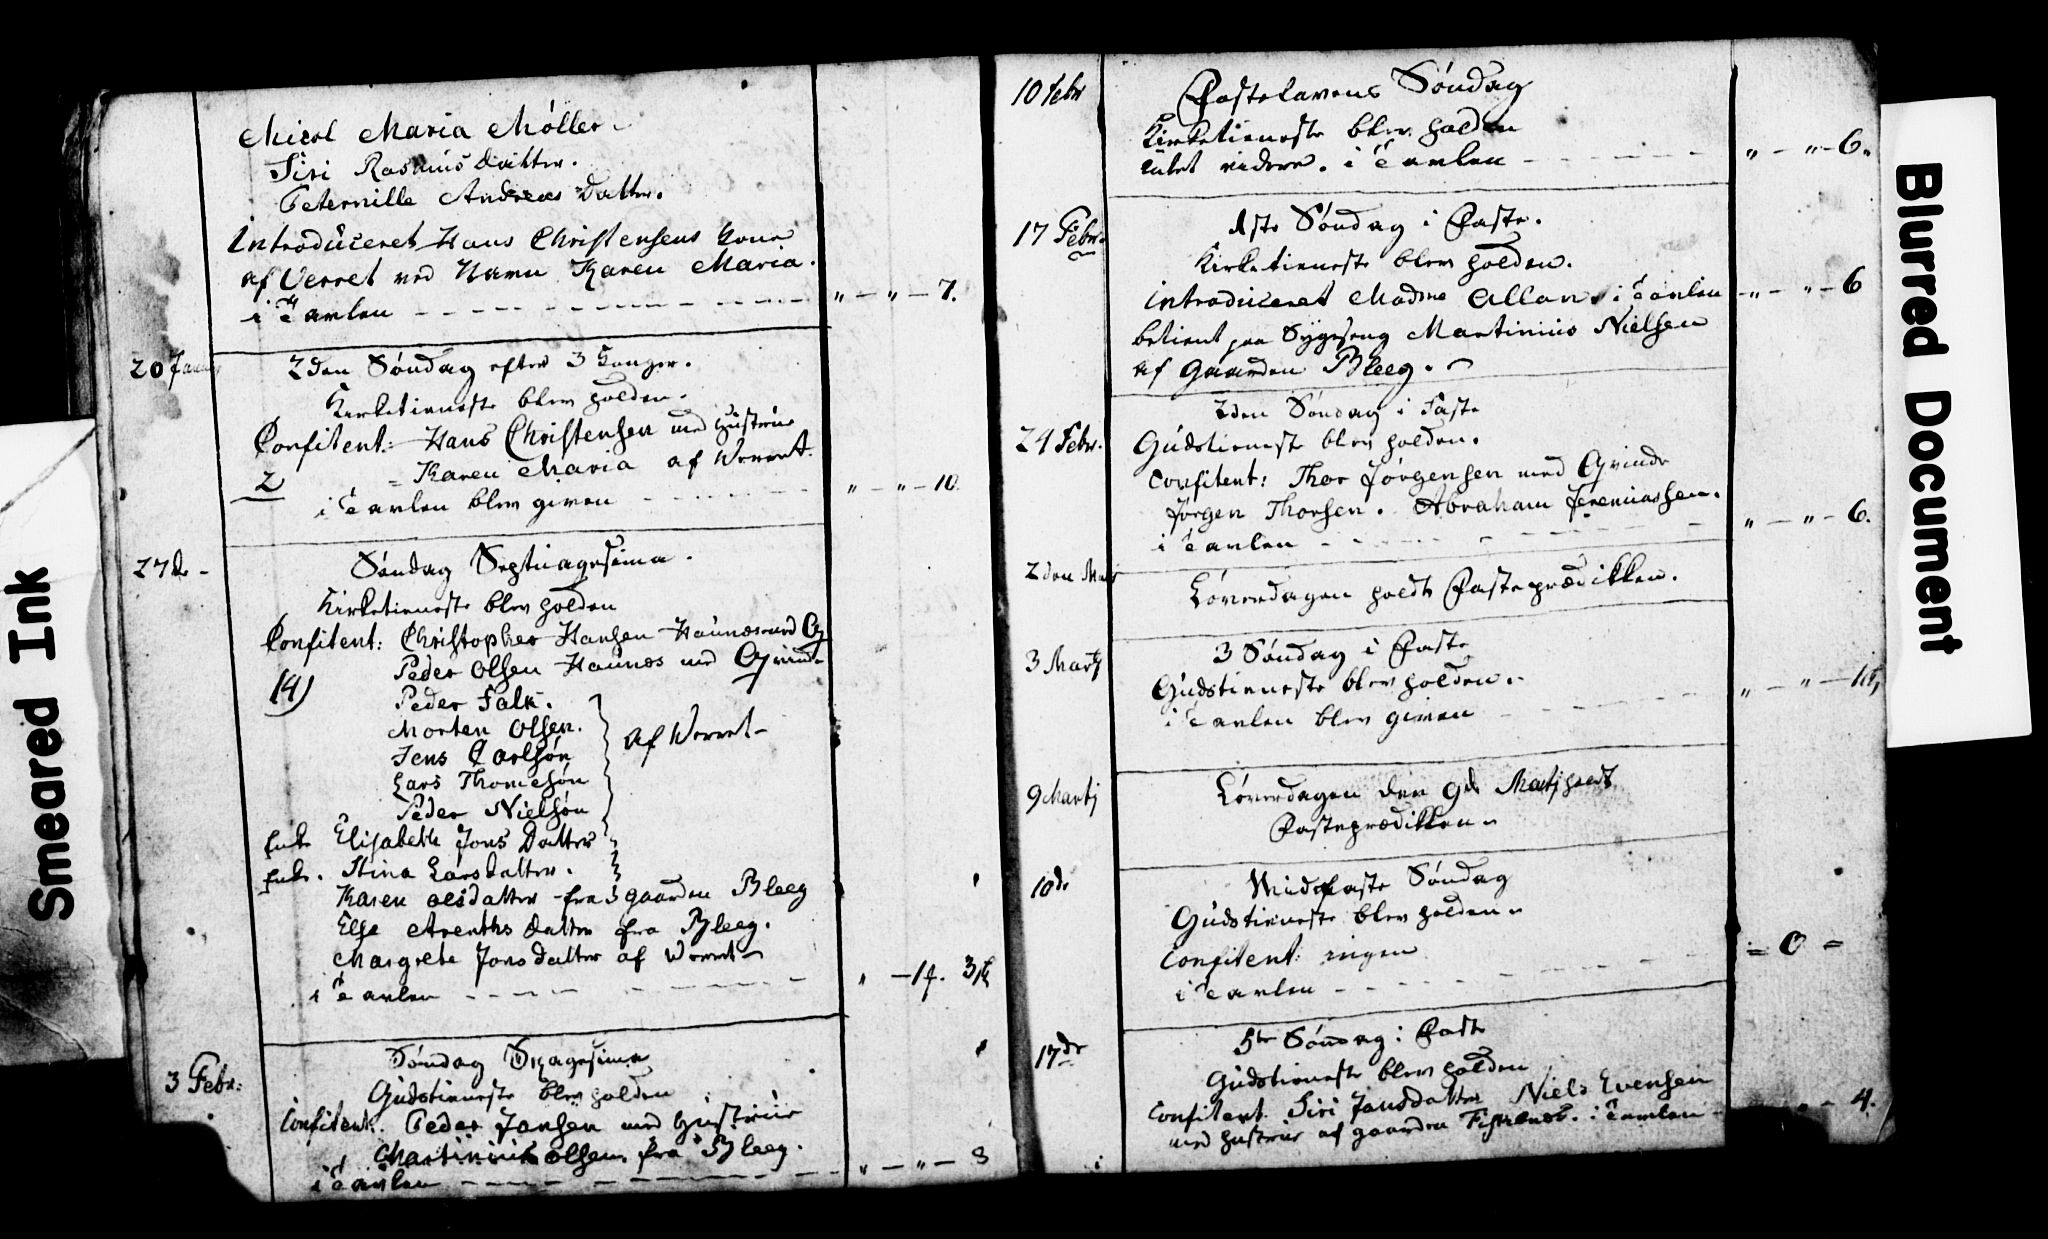 Micel Maria Møller.
Siri Rasmus datter.
Peternille Andreas Datter.
Introduceret Hans Christensens Kone
af Verret ved Navn Karen Maria.
i Tavlen - - - - " - " - 7.
20 Januar
2den Søndag efter 3 Konger.
Kirketieneste blev holden.
Confitent: Hans Christensen med Hustrue
2
= Karen Maria af Werret.
i Tavlen blev given - - - " - " - 10.
27 de -
Søndag Septuagesima.
Kirketieneste blev holden
Confitent: Christopher Hansen Haunæs med Q
14)
Peder Olsen Haunæs med Qvinde
Peder Falk.
Morten Olsen.
af Werret -
Jens Carlsøn
Lars Thomesøn
Peder Nielsøn
Enke Elisabeth Jons Datter
Enke. Stina Larsdatter.
Karen Olsdatter fra gaarden Bleeg
Else Arenths datter fra Bleeg.
Margrete Jonsdatter af Werret
i Tavlen - - - - " - 1f. 3
3 Febr:
Søndag Sexagesima
Gudstieneste blev holden
Confitent. Peder Jansen med Hustrue
Martinius Olsen fra Bleeg.
i Tavlen - - - - " - " - 8
10 Febr
Fastelavens Søndag
Kirketieneste blev holden
intet videre. i Tavlen - - - " - " - 6.
17 Febr.
1ste Søndag i Faste.
Kirketieneste blev holden.
introduceret Madme Allan. i Tavlen - " - " - 6
betient paa Sygeseng Martinius Nielsen
af Gaarden Bleeg.
2den Søndag i Faste
24 Febr.
Gudstieneste blev holden.
Confitent: Thor Jørgensen med Qvinde
Jørgen Thorsen. Abraham Jeremiassen.
i Tavlen - - - - " - " - 6.
2den Mars
Løverdagen holdt Fasteprædikken.
3 Martj
3 Søndag i Faste
Gudstieneste blev holden.
i Tavlen blev given - - - " - " -
9 Martj
Løverdagen den 9de Martj holdt
Fasteprædikken
10 de
Midfaste Søndag
Gudstieneste blev holden
Confitent: ingen
i Tavlen - - - - = 0 =
17 de
5te Søndag i Faste
Gudstieneste blev holden
Confitent. Siri Jansdatter Niels Evensen
med hustrue af gaarden . i Tavlen - - 4.
Smeared Ink
Blurred Document